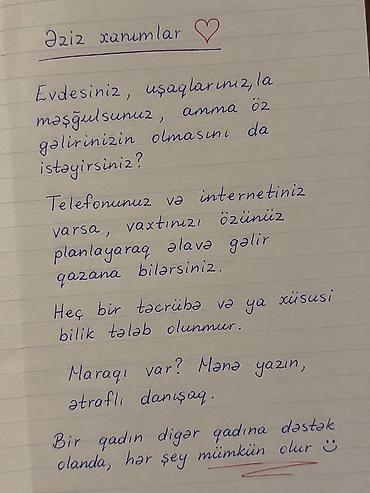 Əziz xanımlar ♡
Evdesiniz, uşaqlarınız,la
məşğulsunuz, amma öz
gəlirinizin olmasını da
istəyirsiniz?
Telefonunuz və internetiniz
varsa, vaxtınızı özünüz
planlayaraq əlavə gəlir
qazana bilərsiniz.
Heç bir təcrübə və ya xüsusi
bilik tələb olunmur.
Maraqı var? Mənə yazın,
ətraflı danışaq.
Bir qadın digər qadına dəstək
olanda, hər şey mümkün olur ☺